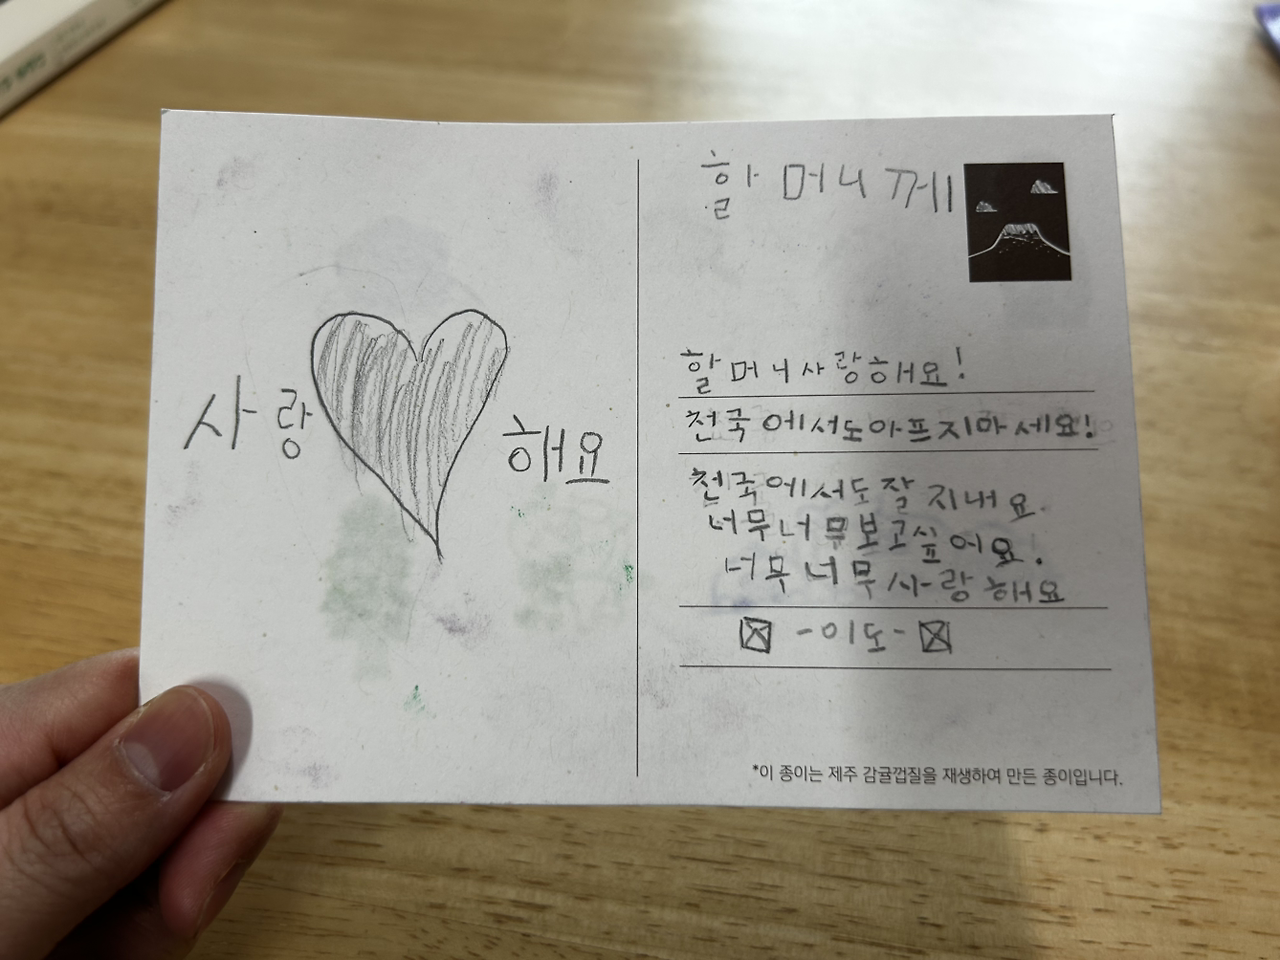 사랑 해요
할머니께
할머니사랑해요!
천국에서도아프지마세요!
천국에서도잘지내요.
너무너무보고싶어요.
너무너무사랑해요
-이도-
*이 종이는 제주 감귤껍질을 재생하여 만든 종이입니다.